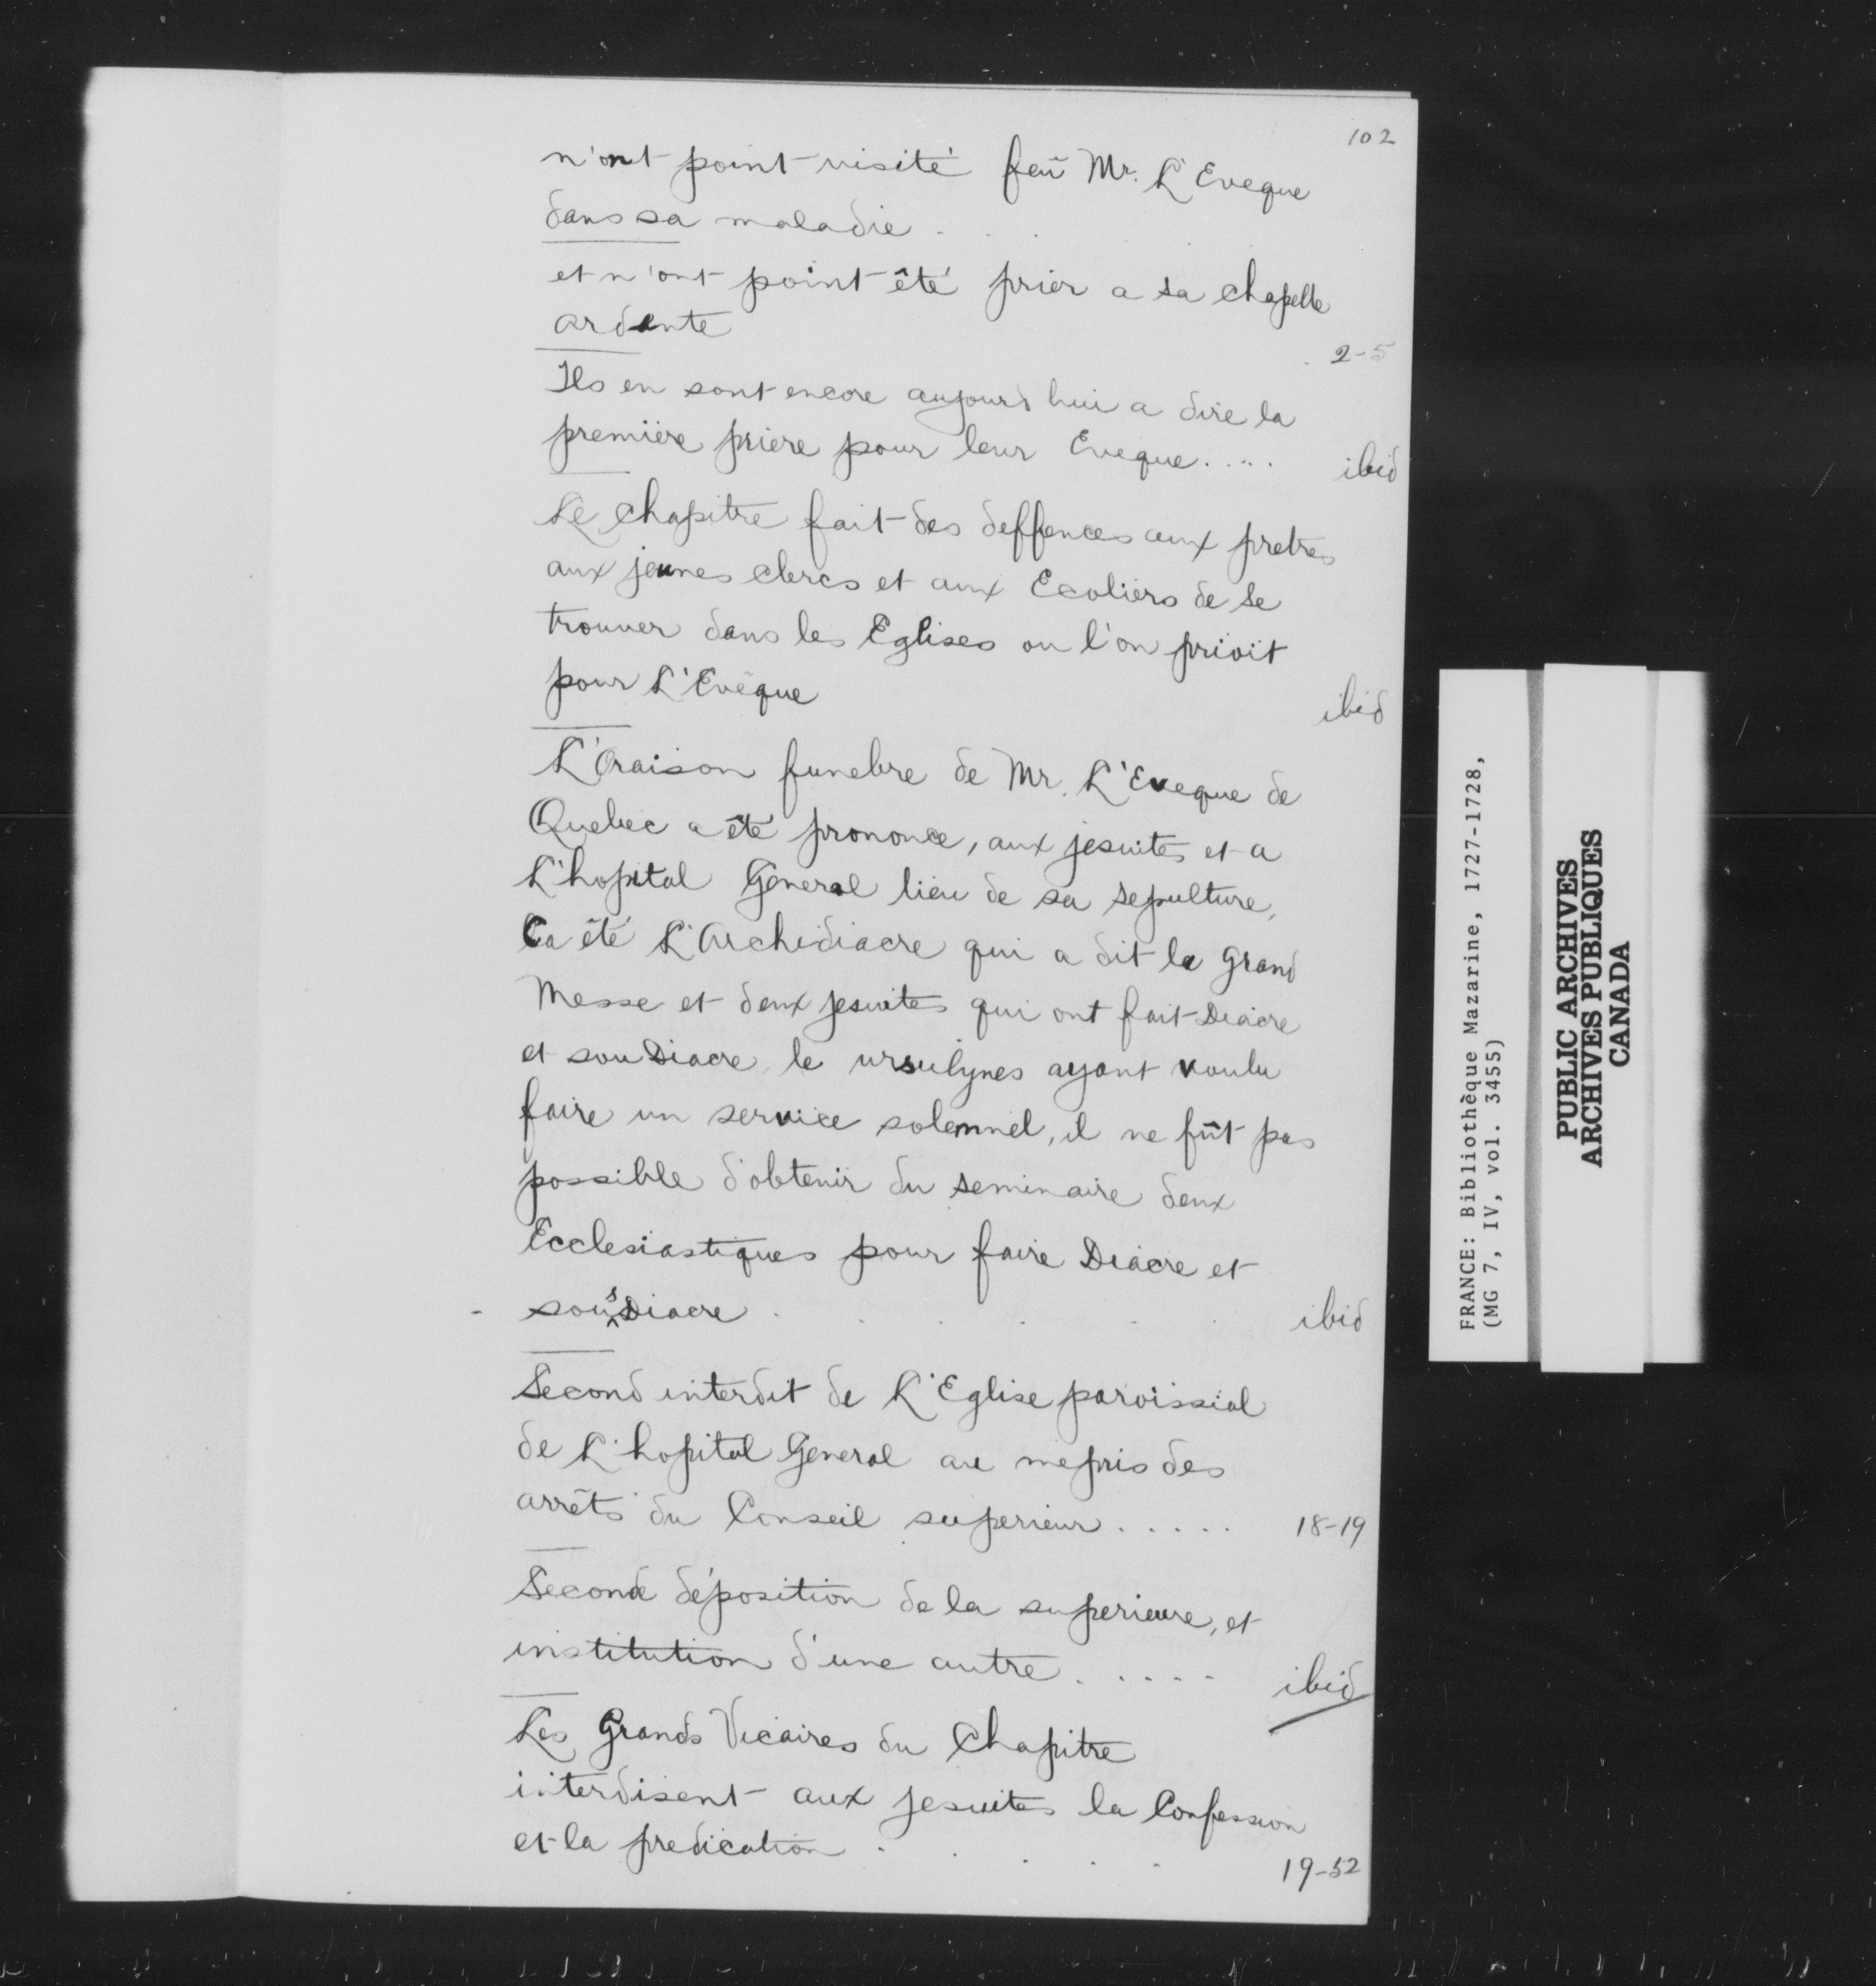 102
n'ont point visité feü Mr. L'Eveque
dans sa maladie . . .
et n'ont point êté prier a sa chapelle
ardente
2-5
Ils en sont encore aujourd hui a dire la
premiere priere pour leur Eveque..... ibid
Le Chapitre fait des deffences aux pretres
aux jeunes clercs et aux Ecoliers de se
trouver dans les Eglises ou l'on prioit
pour L'Evêque
ibid
L'Oraison funebre de Mr. L'Eveque de
Quebec a êté prononce, aux jesuites et a
L'hopital General lieu de sa sepulture,
Ca êté L'Archidiacre qui a dit la grand
Messe et deux jesuites qui ont fait Diacre
et souDiacre, le ursulynes ayant voulu
faire un service solennel, il ne fût pas
possible d'obtenir du seminaire deux
Ecclesiastiques pour faire Diacre et
- sousDiacre . . . . . ibid
Second interdit de L'Eglise paroissial
de L'hopital General au mepris des
arrêts du Conseil superieur ..... 18-19
Seconde déposition de la superieure, et
institution d'une autre ..... ibid
Les Grands Vicaires du Chapitre
interdisent aux jesuites la Confession
et la predication . . . . .
19-52
FRANCE: Bibliothèque Mazarine, 1727-1728,
(MG 7, IV, vol. 3455)
PUBLIC ARCHIVES
ARCHIVES PUBLIQUES
CANADA